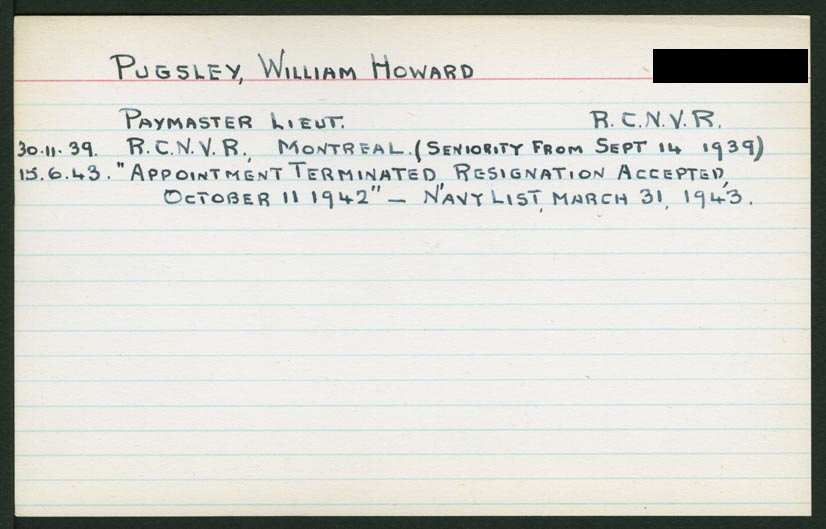 PUGSLEY, WILLIAM HOWARD
PAYMASTER LIEUT. R.C.N.V.R.
30.11.39. R.C.N.V.R., MONTREAL. (SENIORITY FROM SEPT 14 1939)
15.6.43. "APPOINTMENT TERMINATED RESIGNATION ACCEPTED,
OCTOBER 11 1942" — NAVY LIST, MARCH 31, 1943.